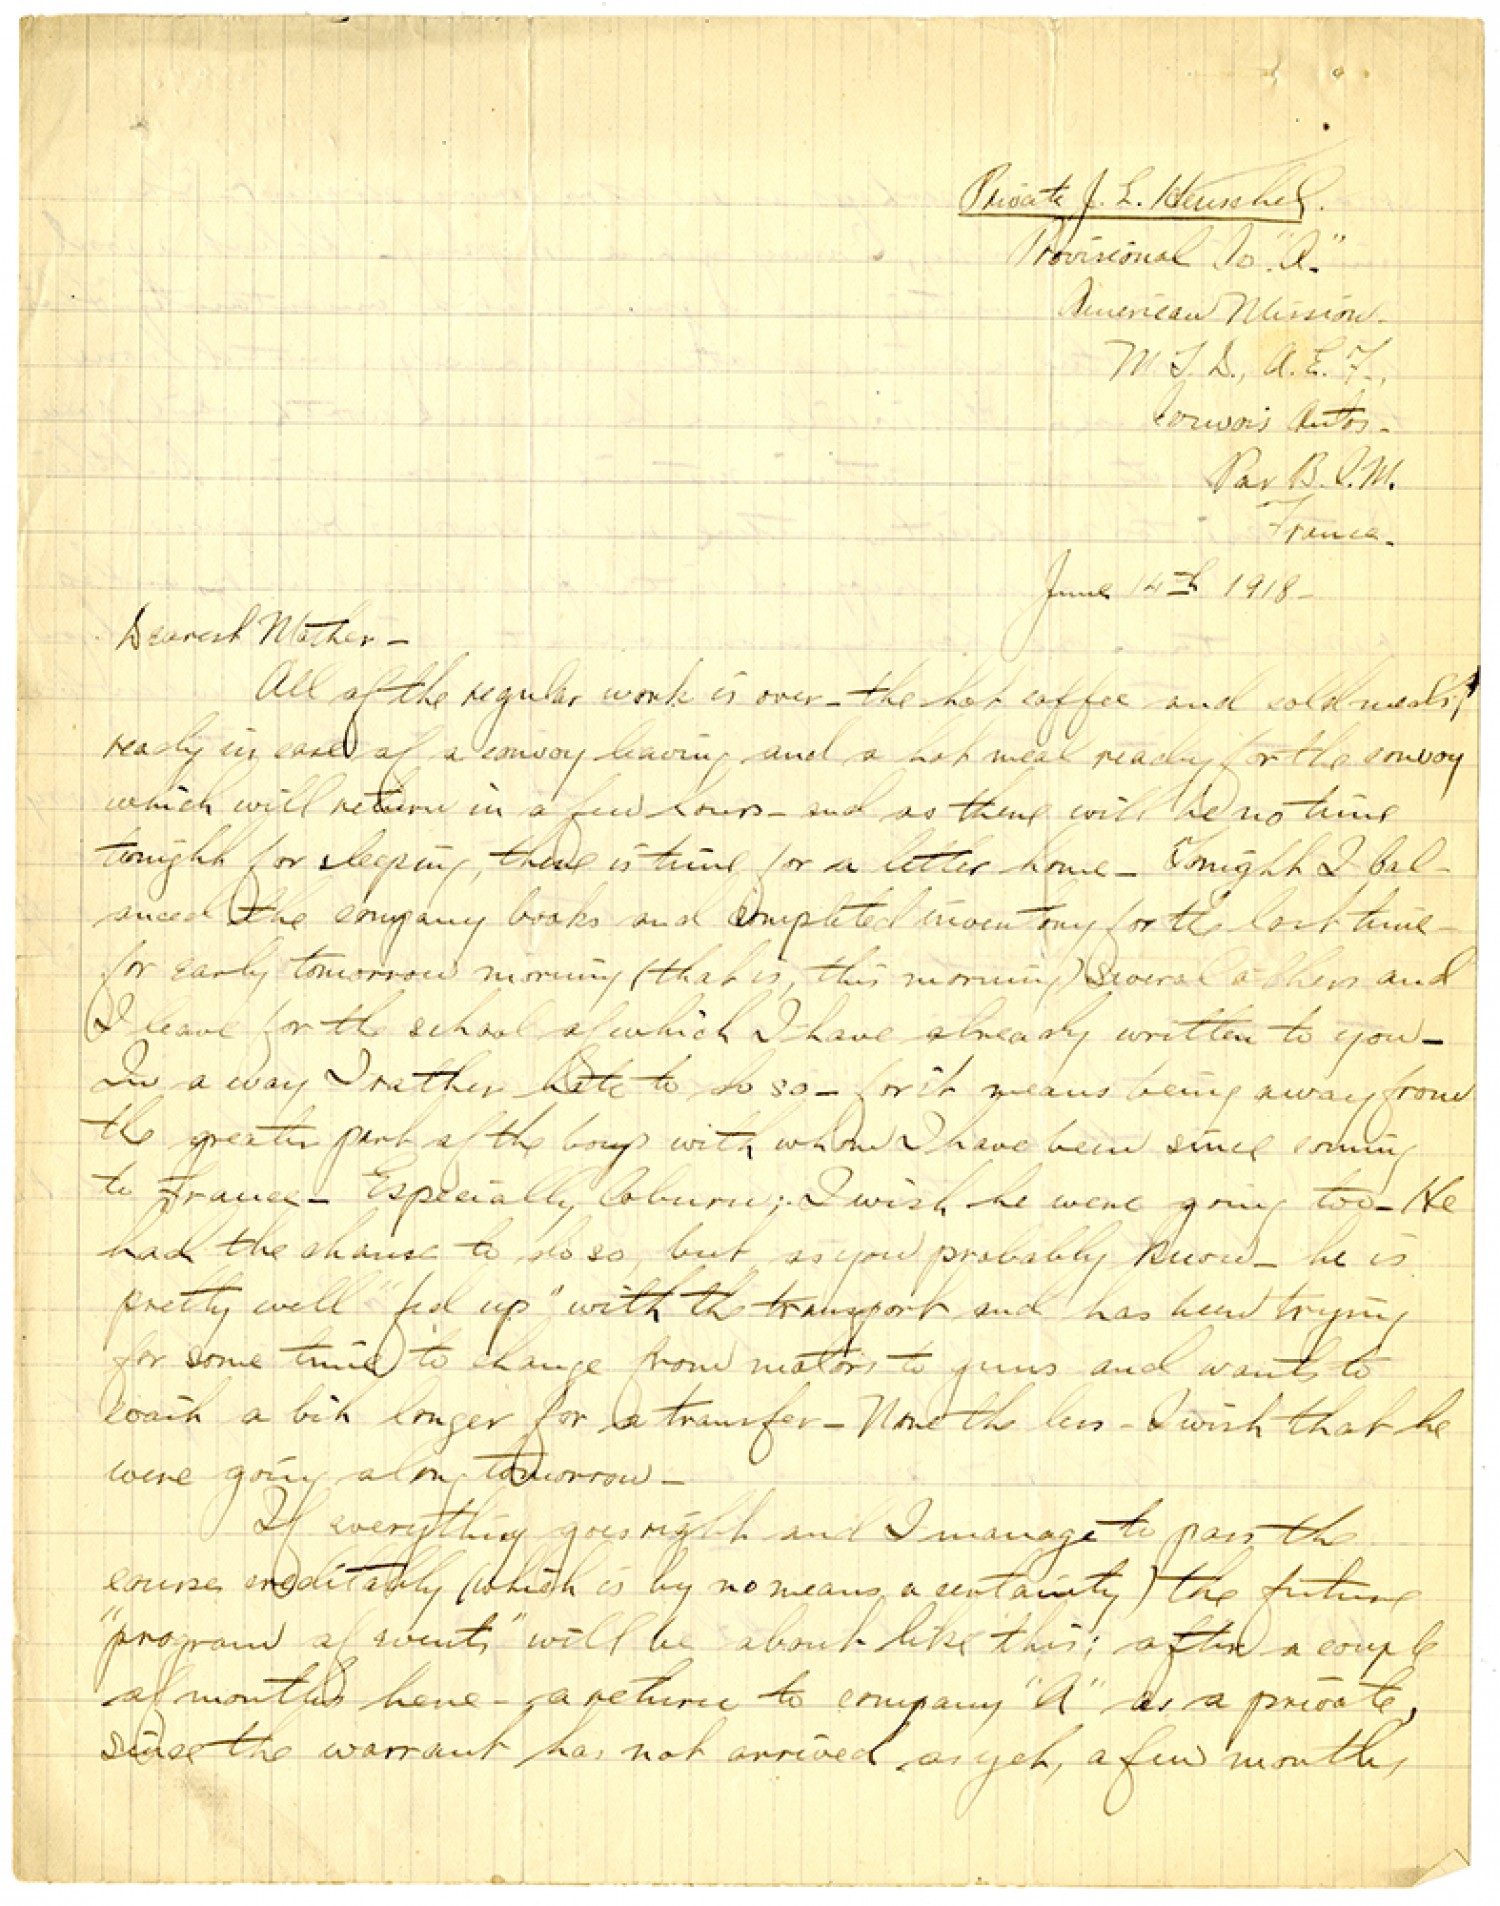 Private J. L. Henschel.
Provisional Co. "A."
American Mission-
M. T. D., A. E. F.,
Convois Autos-
Par B. C. M.
France-
June 14th 1918-
Dearest Mother-
All of the regular work is over- the hot coffee and cold meats,
ready in case of a convoy leaving and a hot meal ready for the convoy
which will return in a few hours- and as there will be no time
tonight for sleeping, there is time for a letter home- Tonight I bal-
anced the company books and completed inventory for the last time-
for early tomorrow morning (that is, this morning) several others and
I leave for the school of which I have already written to you-
In a way I rather hate to do so- for it means being away from
the greater part of the boys with whom I have been since coming
to France- Especially Coburn; I wish he were going too- He
had the chance to do so but as you probably know- he is
pretty well "fed up" with the transport and has been trying
for some time to change from motors to guns and wants to
wait a bit longer for a transfer- None the less- I wish that he
were going along tomorrow-
If everything goes right and I manage to pass the
course creditably (which is by no means a certainity) the future
"program of events" will be about like this; after a couple
of months here- a return to company "A" as a private,
since the warrant has not arrived as yet, a few months